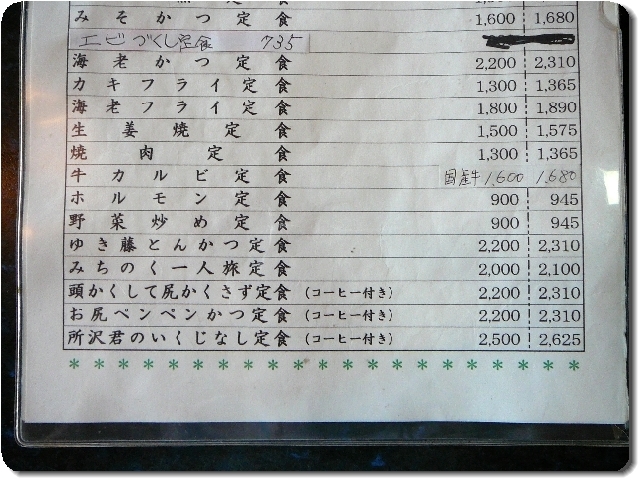 みそかつ定食 1,600 1,680
エビづくし定食 735
海老かつ定食 2,200 2,310
カキフライ定食 1,300 1,365
海老フライ定食 1,800 1,890
生姜焼定食 1,500 1,575
焼肉定食 1,300 1,365
牛カルビ定食 国産牛 1,600 1,680
ホルモン定食 900 945
野菜炒め定食 900 945
ゆき藤とんかつ定食 2,200 2,310
みちのく一人旅定食 2,000 2,100
頭かくして尻かくさず定食 (コーヒー付き) 2,200 2,310
お尻ペンペンかつ定食 (コーヒー付き) 2,200 2,310
所沢君のいくじなし定食 (コーヒー付き) 2,500 2,625
* * * * * * * * * * * * * * * * * * * * * * * *